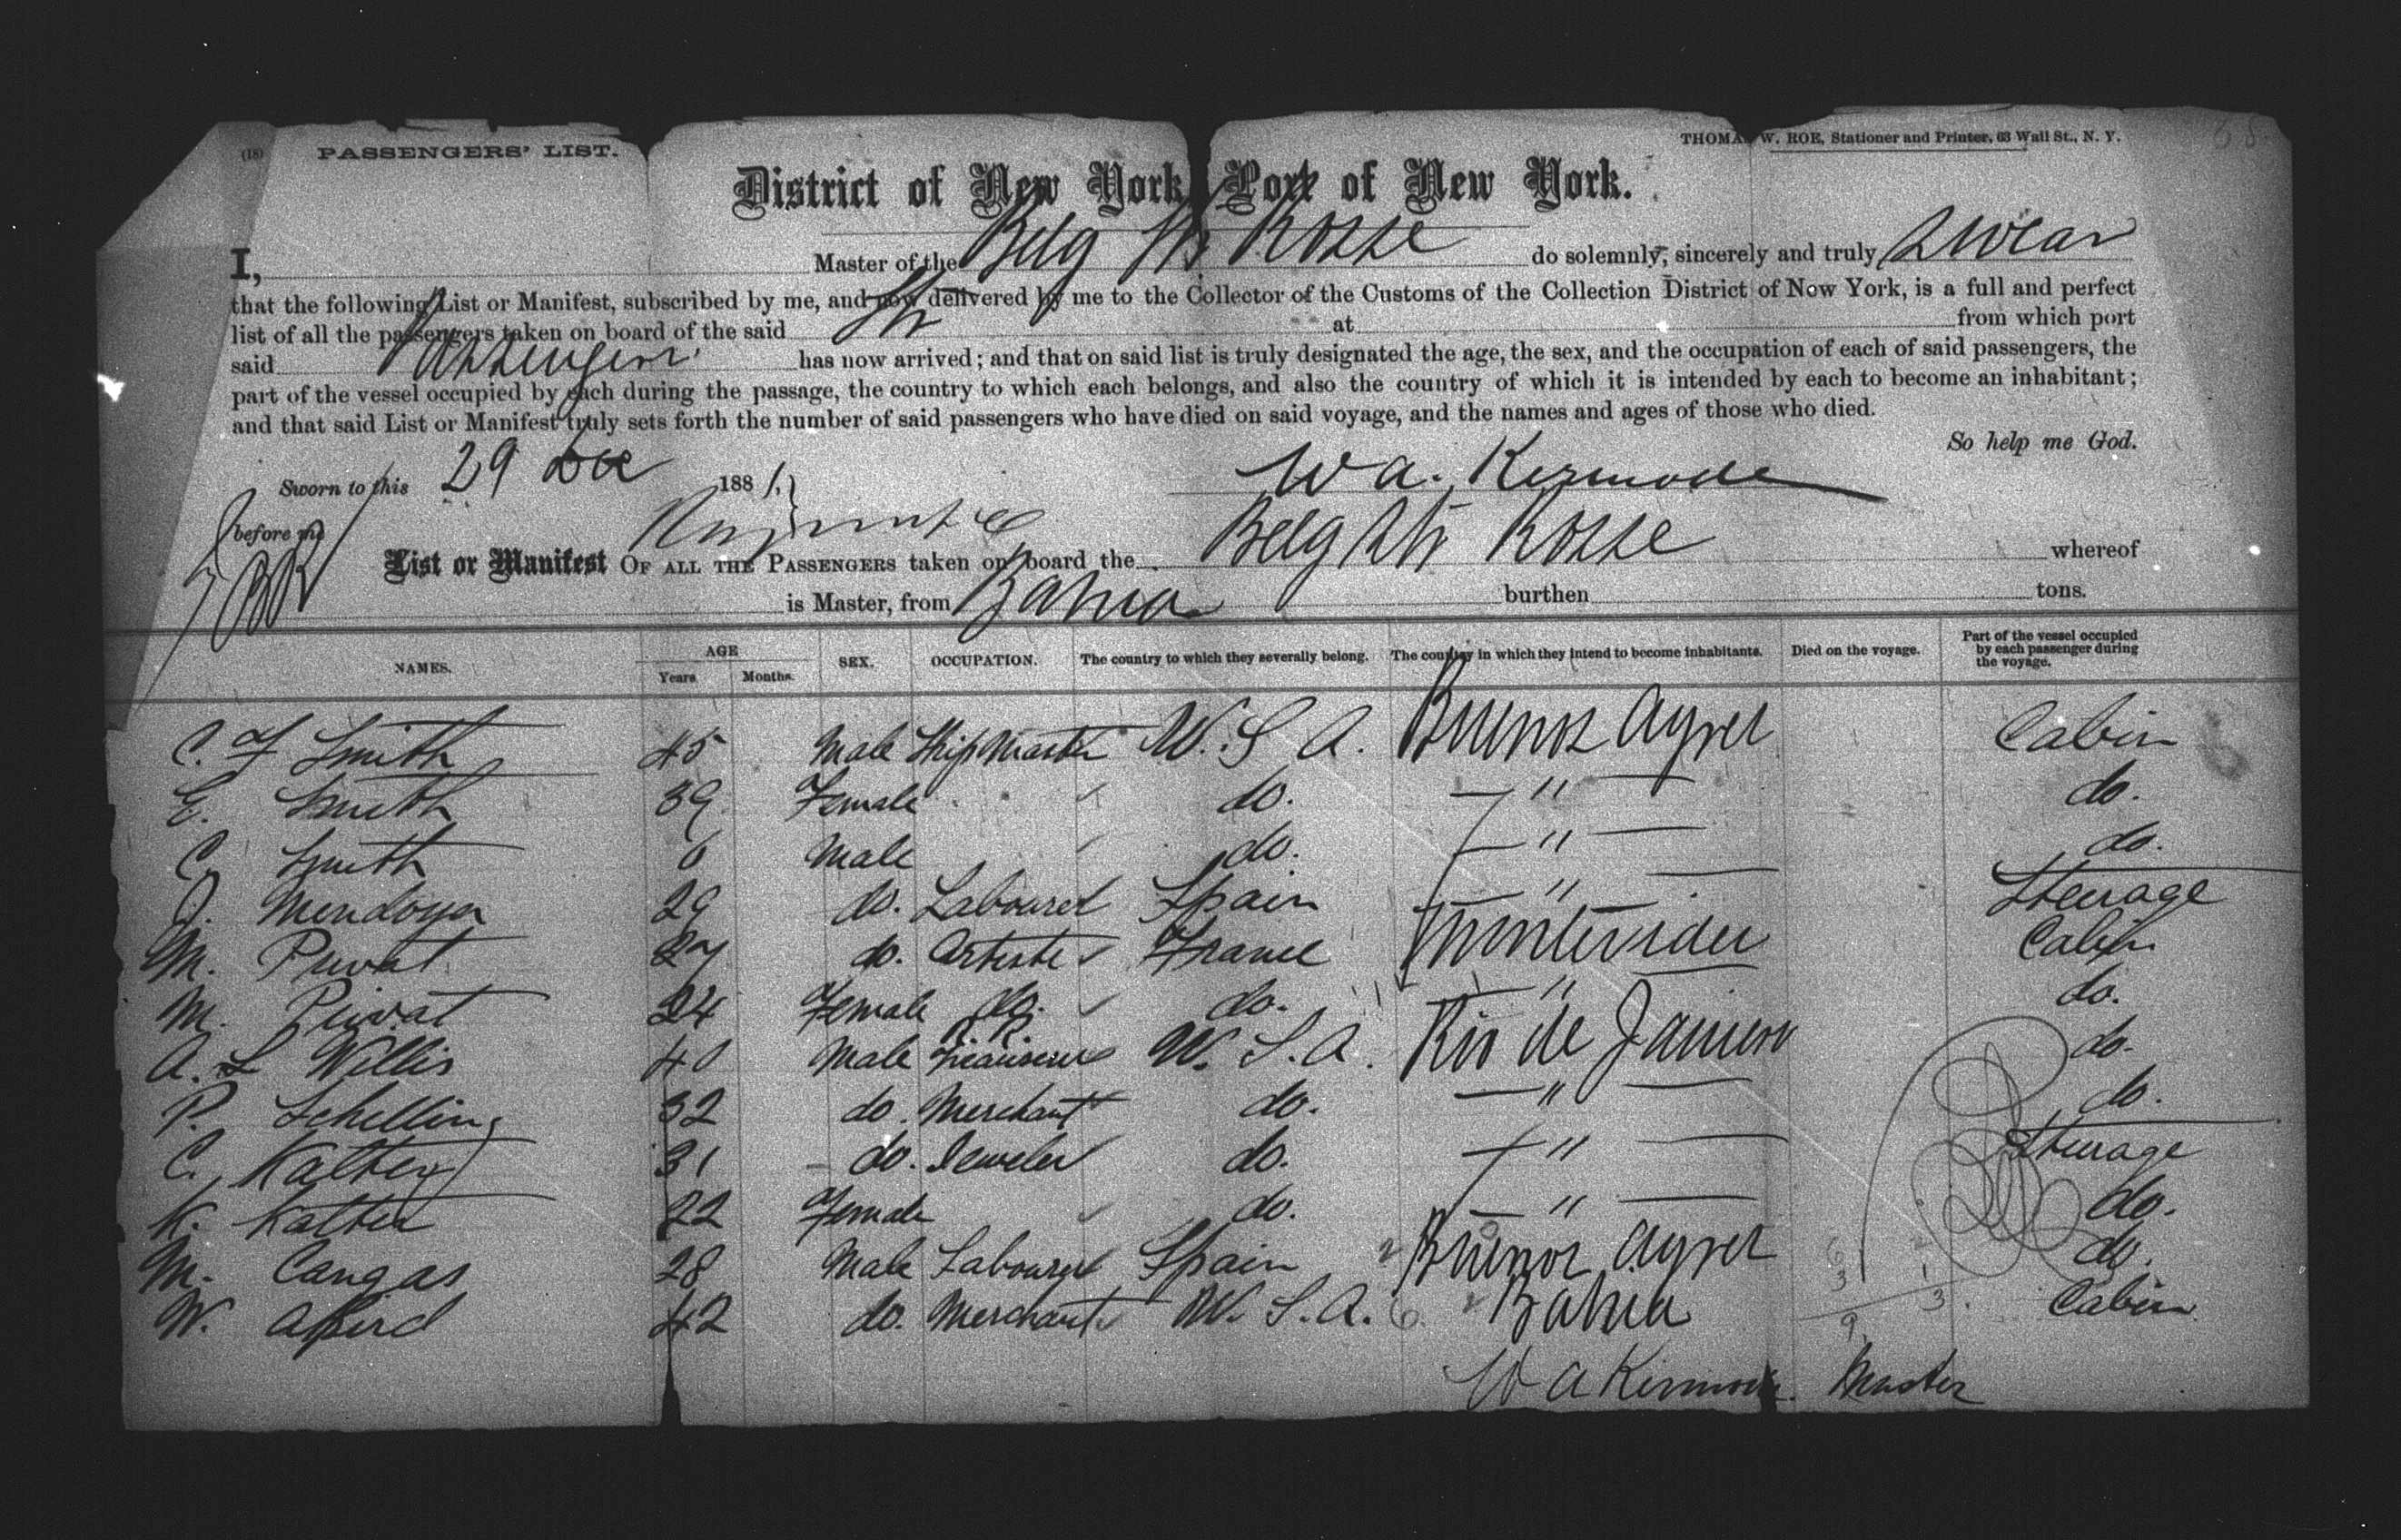 (18) PASSENGERS' LIST.
THOMAS W. ROE, Stationer and Printer, 63 Wall St., N. Y.
District of New York, Port of New York.
I, Master of the Belg Str Rosse do solemnly, sincerely and truly swear
that the following List or Manifest, subscribed by me, and now delivered by me to the Collector of the Customs of the Collection District of New York, is a full and perfect
list of all the passengers taken on board of the said Str at from which port
said Passengers has now arrived; and that on said list is truly designated the age, the sex, and the occupation of each of said passengers, the
part of the vessel occupied by each during the passage, the country to which each belongs, and also the country of which it is intended by each to become an inhabitant;
and that said List or Manifest truly sets forth the number of said passengers who have died on said voyage, and the names and ages of those who died.
So help me God.
Sworn to this 29 Dec 1881, W A. Kermode
before me
List or Manifest OF ALL THE PASSENGERS taken on board the Belg Str Rosse whereof
is Master, from Bahia burthen tons.
NAMES. AGE Years Months. SEX. OCCUPATION. The country to which they severally belong. The country in which they intend to become inhabitants. Died on the voyage. Part of the vessel occupied by each passenger during the voyage.
C. F Smith 45 Male Ship Master U. S A. Buenos Ayres Cabin
E. Smith 39 Female do. " do.
C. Smith 6 Male do. " do.
J. Mendoza 29 do. Labourer Spain " Steerage
M. Privat 27 do. Artiste France Montevideo Cabin
M. Privat 24 Female do. do. " do.
A. L Willis 40 Male R R Treasurer U. S. A. Rio de Janeiro do.
P. Schelling 32 do. Merchant do. " do.
C. Katten 31 do. Jeweler do. " Steerage
K. Katten 22 Female do. " do.
M. Cangas 28 Male Labourer Spain Buenos Ayres do.
W. 42 do. Merchant U. S. A. Bahia Cabin
W A Kermode. Master